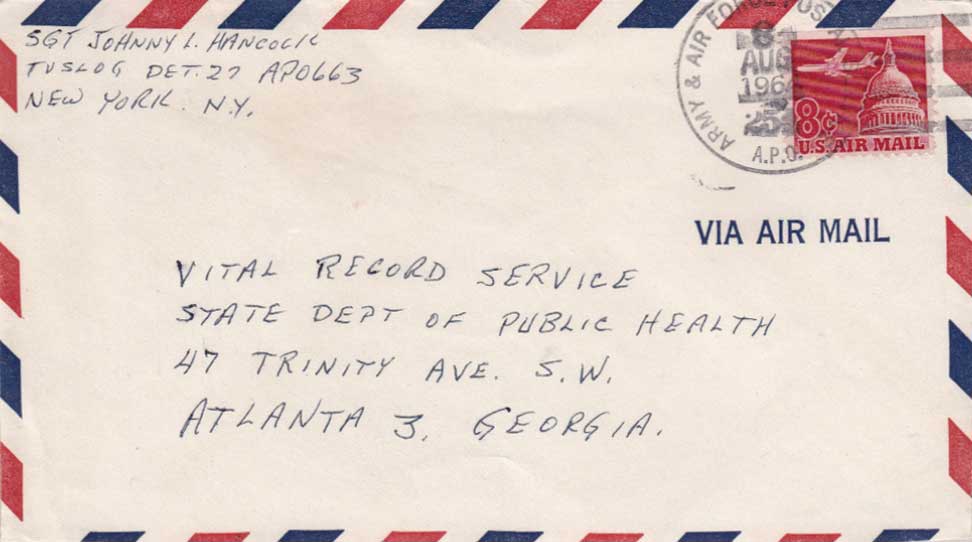 SGT JOHNNY L. HANCOCK
TUSLOG DET. 27 APO663
NEW YORK. N.Y.
ARMY & AIR FORCE POSTAL
8
AUG
A.P.O.
8¢
U.S. AIR MAIL
VIA AIR MAIL
VITAL RECORD SERVICE
STATE DEPT OF PUBLIC HEALTH
47 TRINITY AVE. S.W.
ATLANTA 3, GEORGIA.